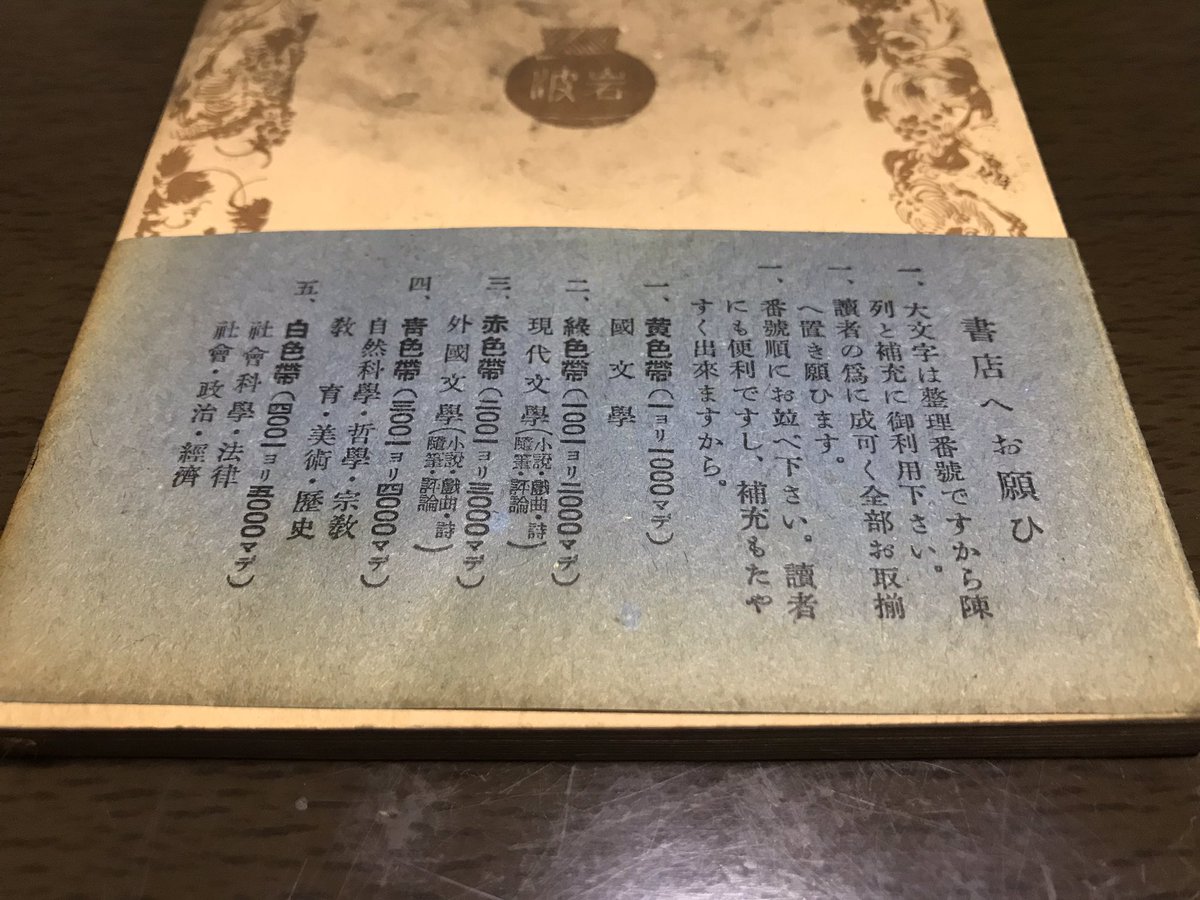 岩波
書店へお願ひ
一、大文字は整理番號ですから陳
列と補充に御利用下さい。
一、讀者の爲に成可く全部お取揃
へ置き願ひます。
一、番號順にお竝べ下さい。讀者
にも便利ですし、補充もたや
すく出來ますから。
一、黄色帶(一ヨリ一〇〇〇マデ)
國文學
二、綠色帶(一〇〇一ヨリ二〇〇〇マデ)
現代文學(小説・戲曲・詩
隨筆・評論)
三、赤色帶(二〇〇一ヨリ三〇〇〇マデ)
外國文學(小説・戲曲・詩
隨筆・評論)
四、靑色帶(三〇〇一ヨリ四〇〇〇マデ)
自然科學・哲學・宗敎
敎育・美術・歷史
五、白色帶(四〇〇一ヨリ五〇〇〇マデ)
社會科學・法律
社會・政治・經濟